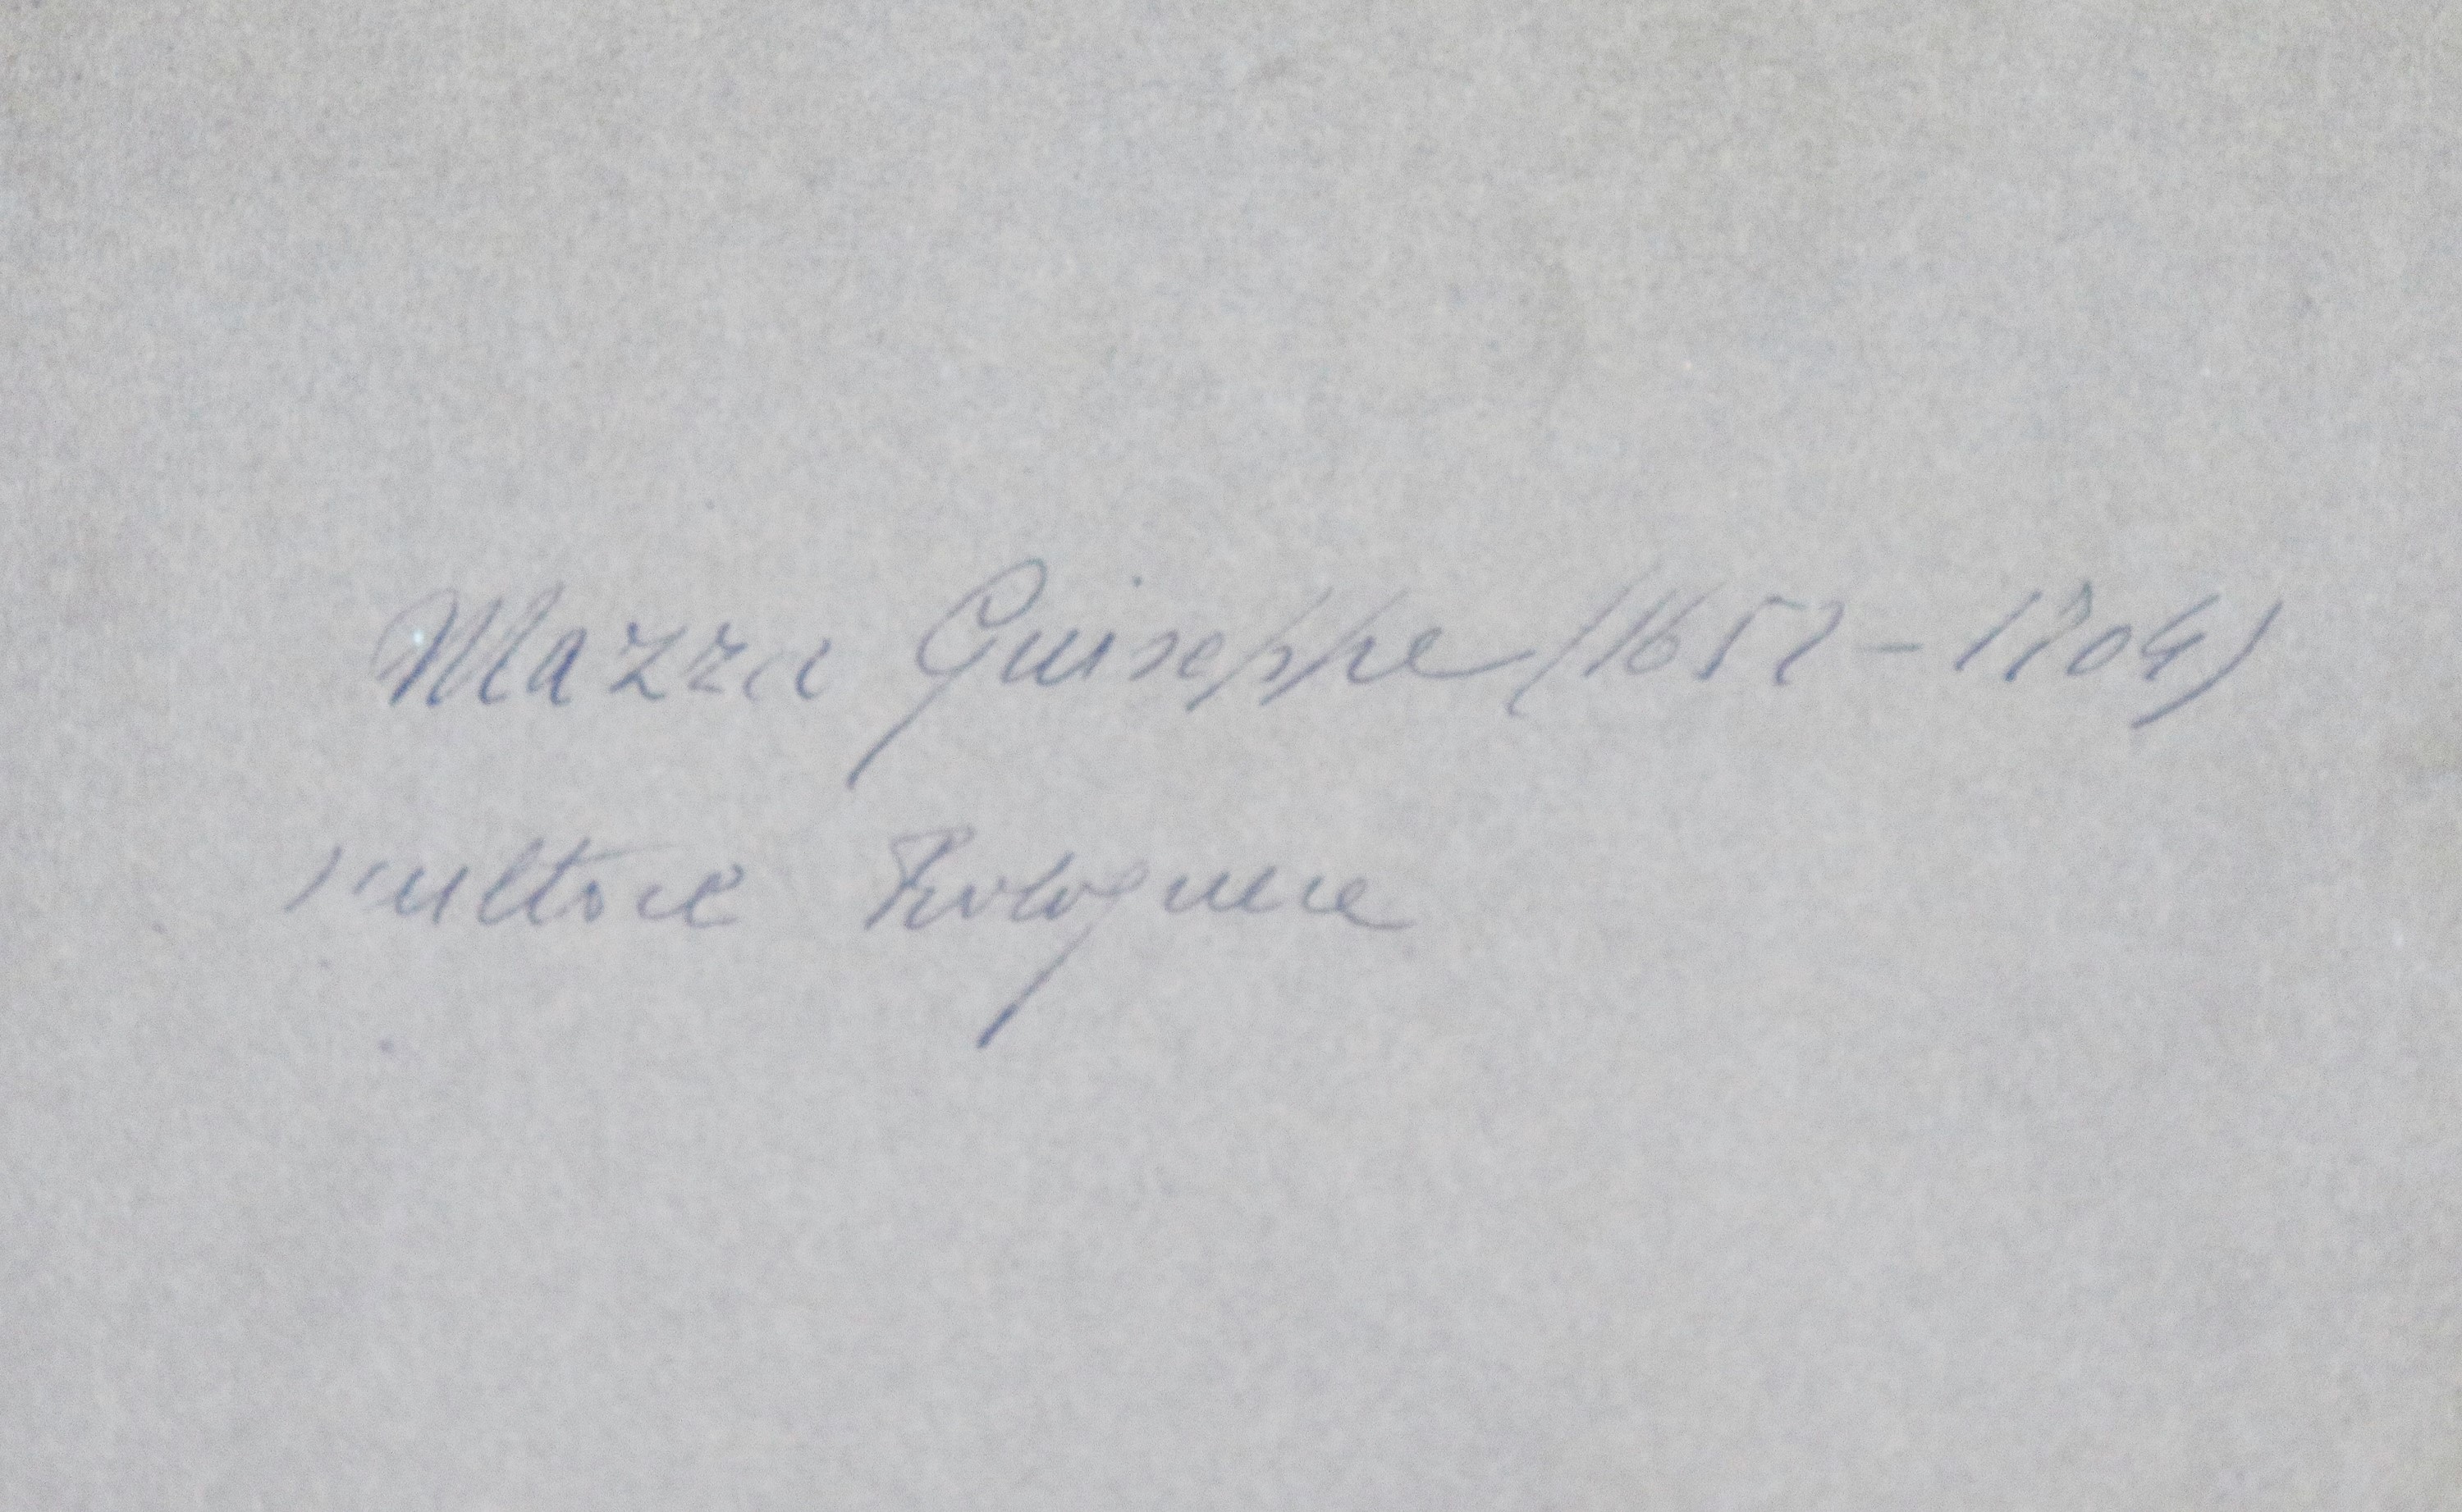 Mazza Guiseppe (1652 - 1704)
scultore Bolognese